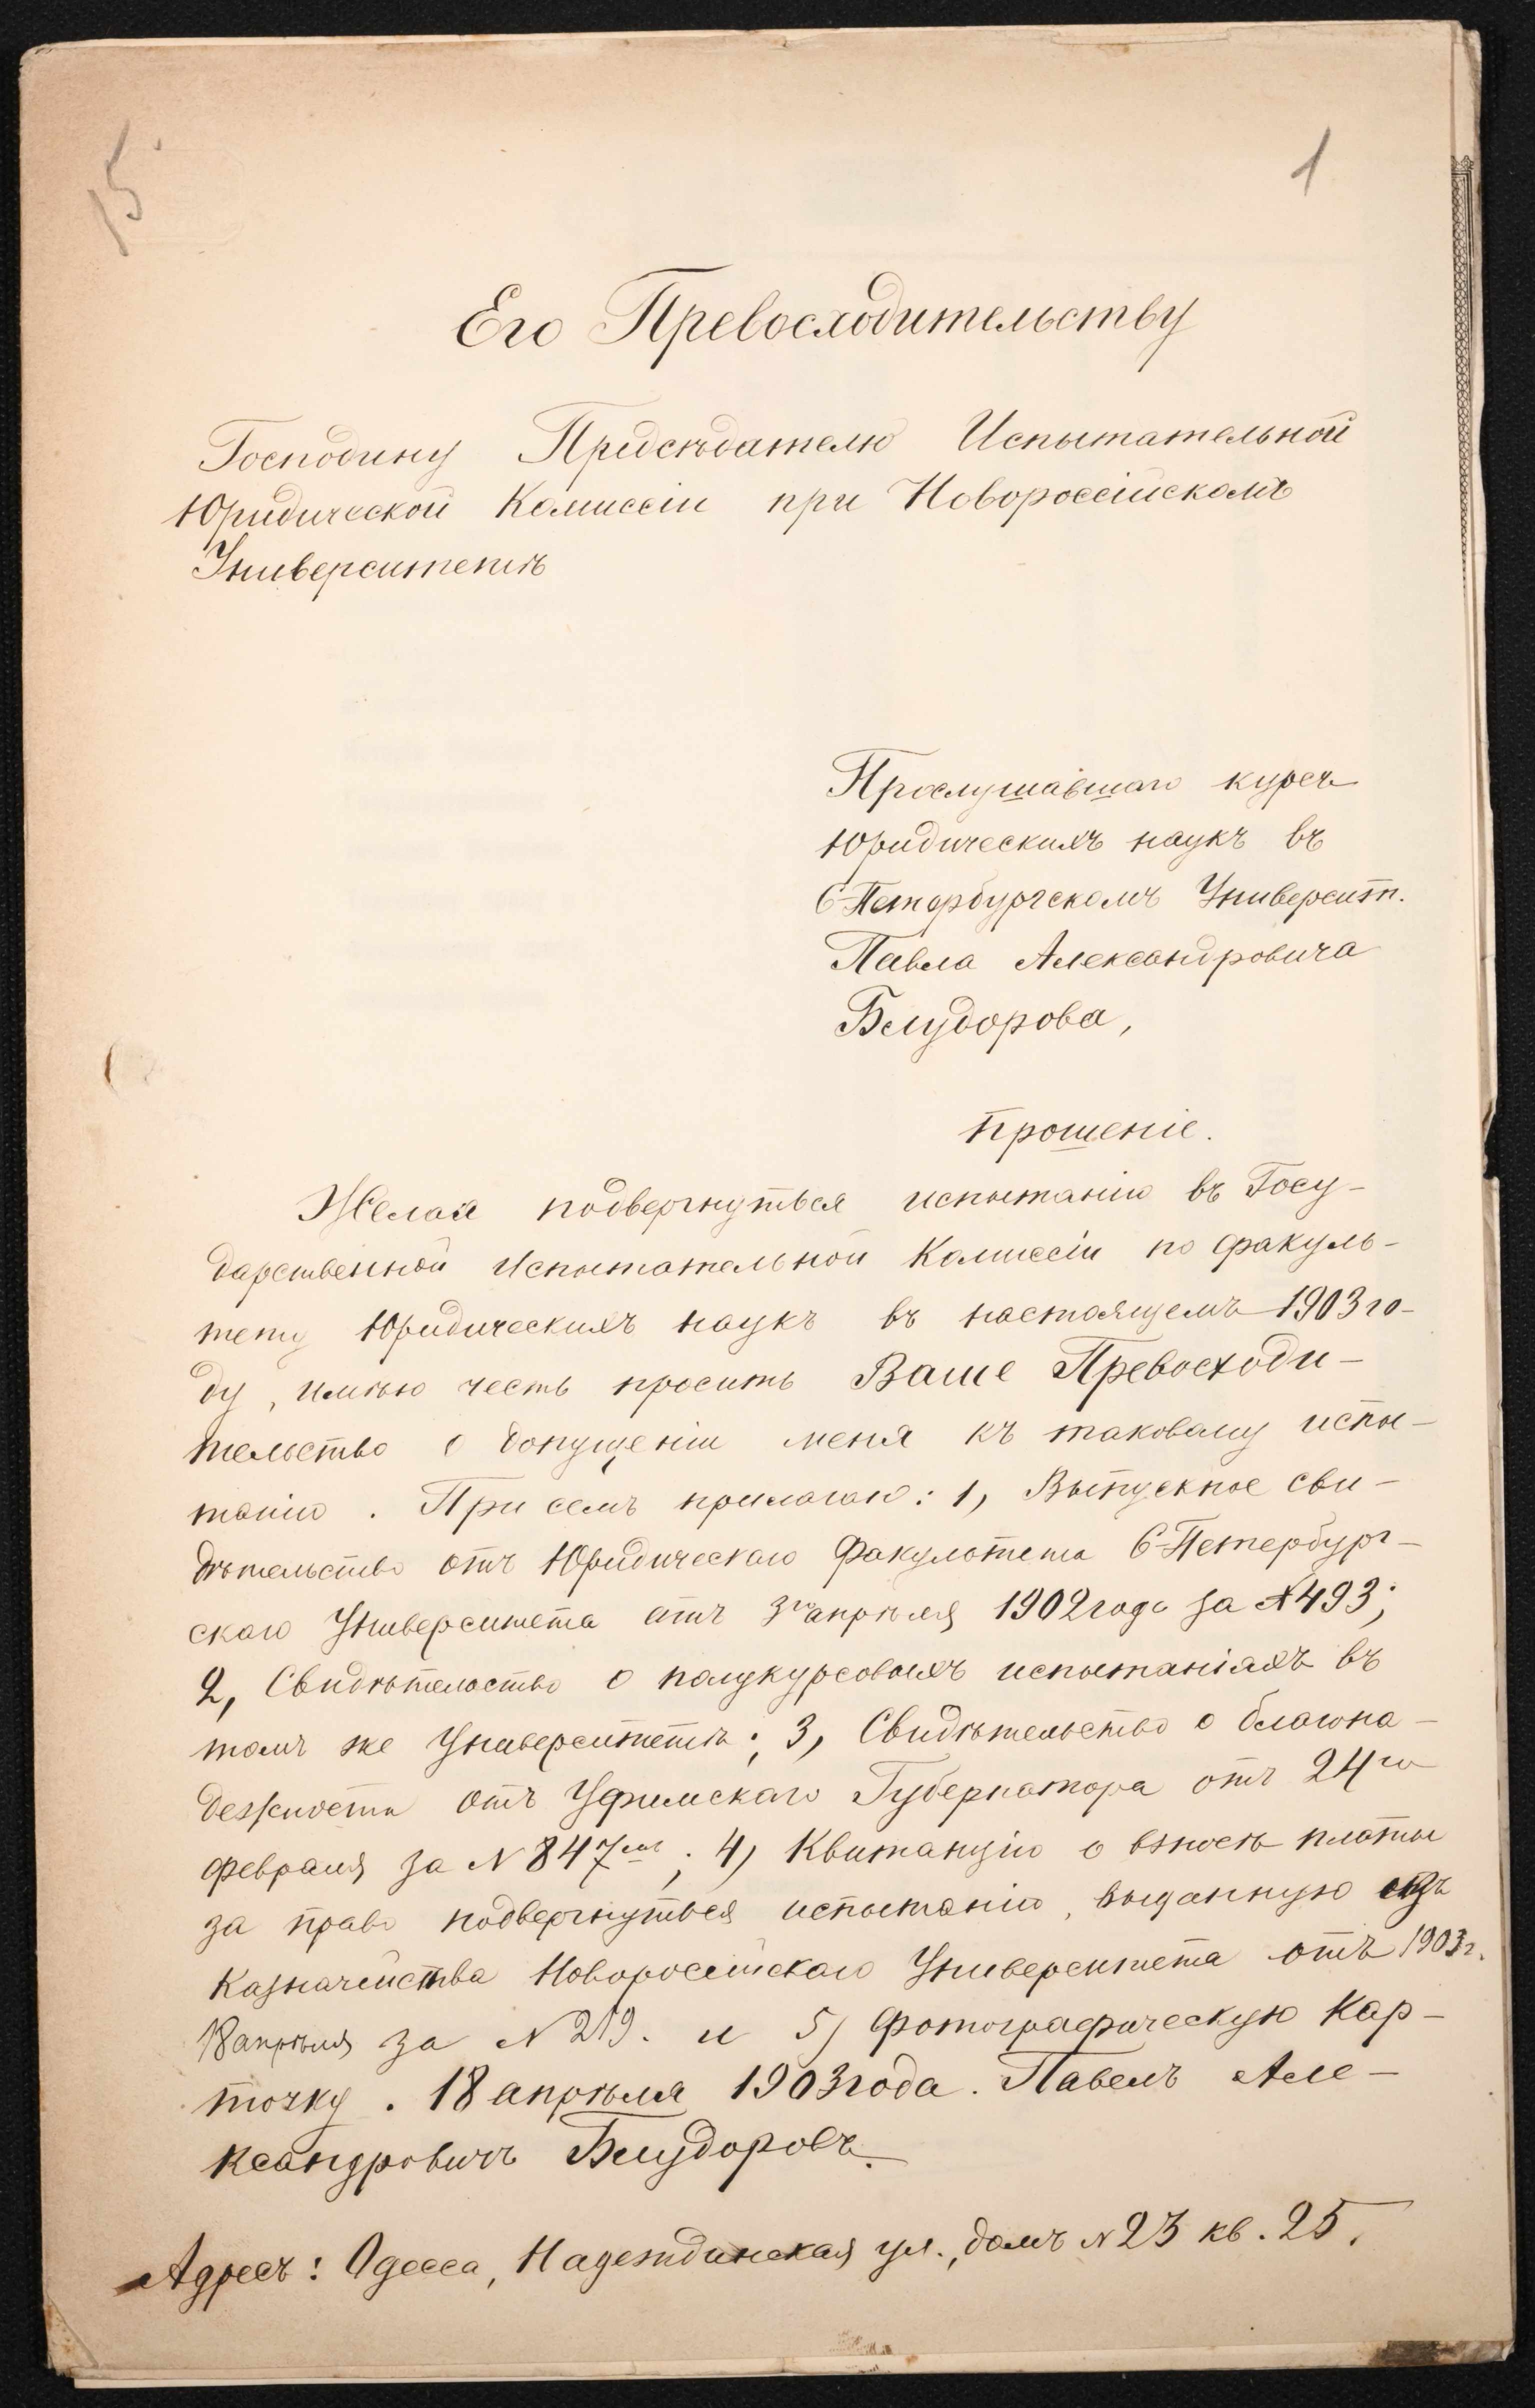 15
1
Его Превосходительству
Господину Предсѣдателю Испытательной
Юридической Комиссіи при Новороссійскомъ
Университетѣ
Прослушавшаго курсъ
Юридическихъ наукъ въ
С-Петербургскомъ Университ.
Павла Александровича
Блудорова,
прошеніе.
Желая подвергнуться испытанію въ Госу-
дарственной Испытательной Комиссіи по факуль-
тету Юридическихъ наукъ въ настоящемъ 1903 го-
ду, имѣю честь просить Ваше Превосходи-
тельство о допущеніи меня къ таковому испы-
танію. При семъ прилагаю: 1, Выпускное сви-
дѣтельство отъ Юридическаго Факультета С-Петербург-
скаго Университета отъ 3го апрѣля 1902 года за №493;
2, Свидѣтельство о полукурсовыхъ испытаніяхъ въ
томъ же Университетѣ; 3, Свидѣтельство о благона-
дежности отъ Уфимскаго Губернатора отъ 24го
февраля за N 847; 4, Квитанцію о взносѣ платы
за право подвергнуться испытанію, выданную изъ
Казначейства Новороссійскаго Университета отъ 1903г.
18 апрѣля за N 219. и 5, фотографическую кар-
точку. 18 апрѣля 1903 года. Павелъ Але-
ксандровичъ Блудоровъ.
Адресъ: Одесса, Надеждинская ул., домъ N 23 кв. 25.